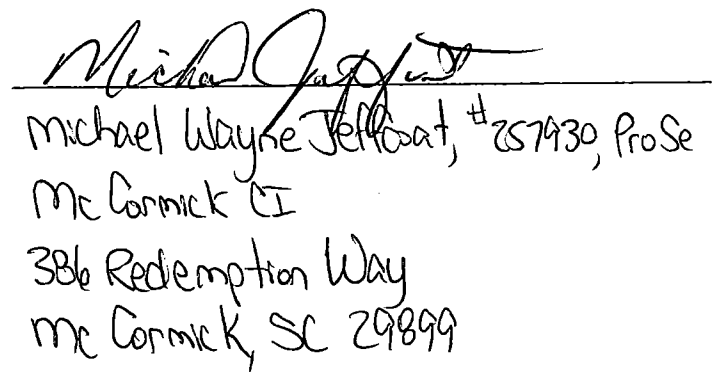 Michael Jeffcoat
Michael Wayne Jeffcoat, #257930, ProSe
McCormick CI
386 Redemption Way
McCormick, SC 29899